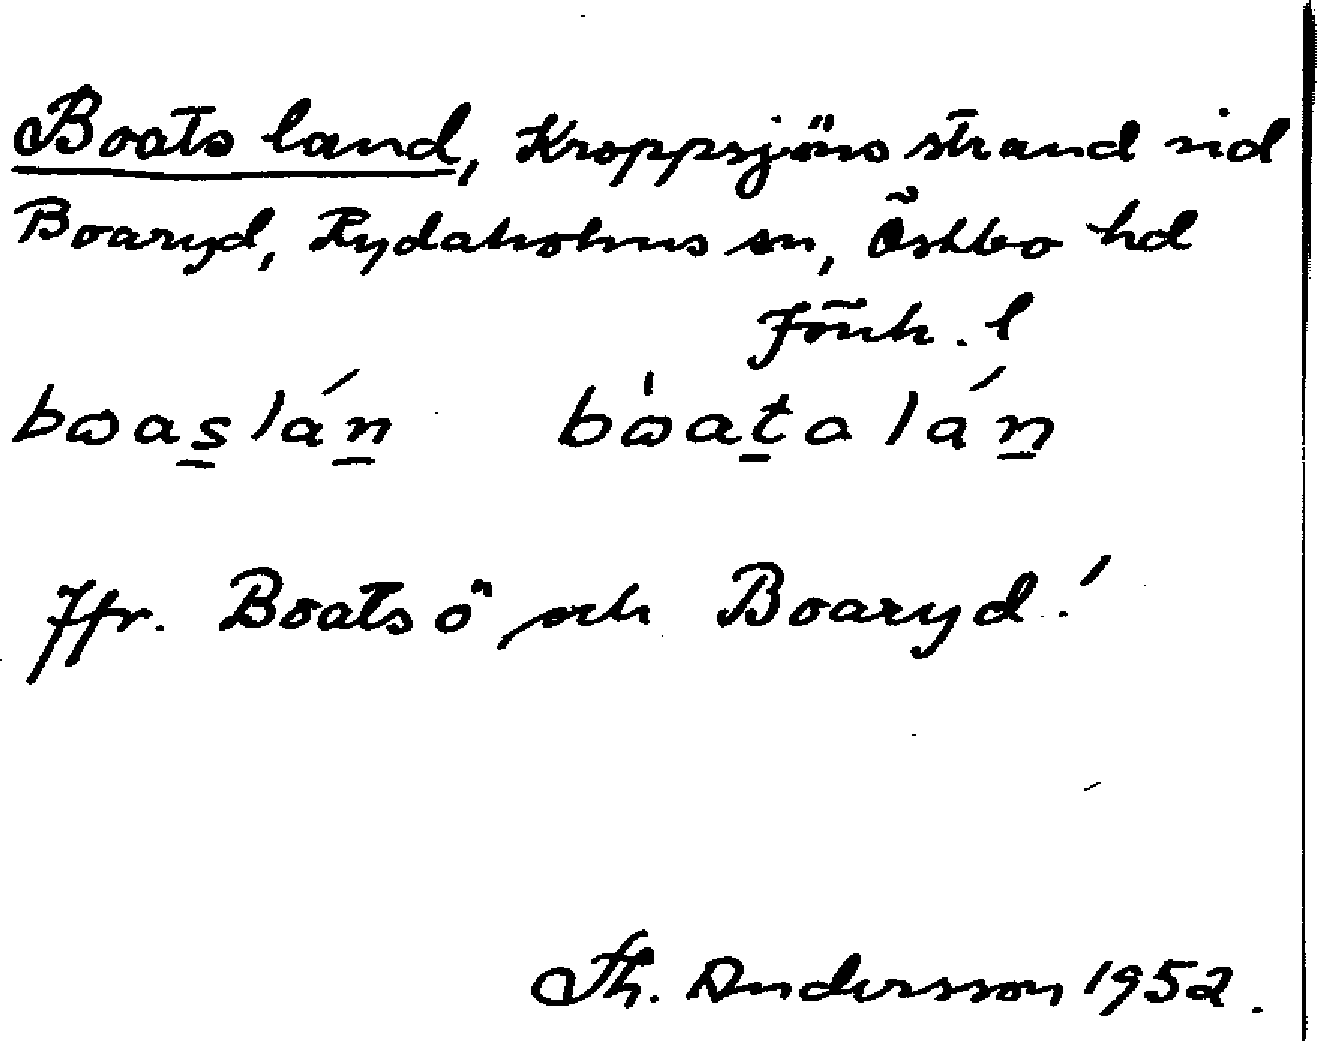 Boats land, Kroppsjöns strand vid
Boaryd, Rydaholms sn, Östbo hd
Jönk. l
bɷas̲lán̲ bɷ̀at̲alán̲
Jfr. Boatsö och Boaryd!
Th. Andersson 1952.